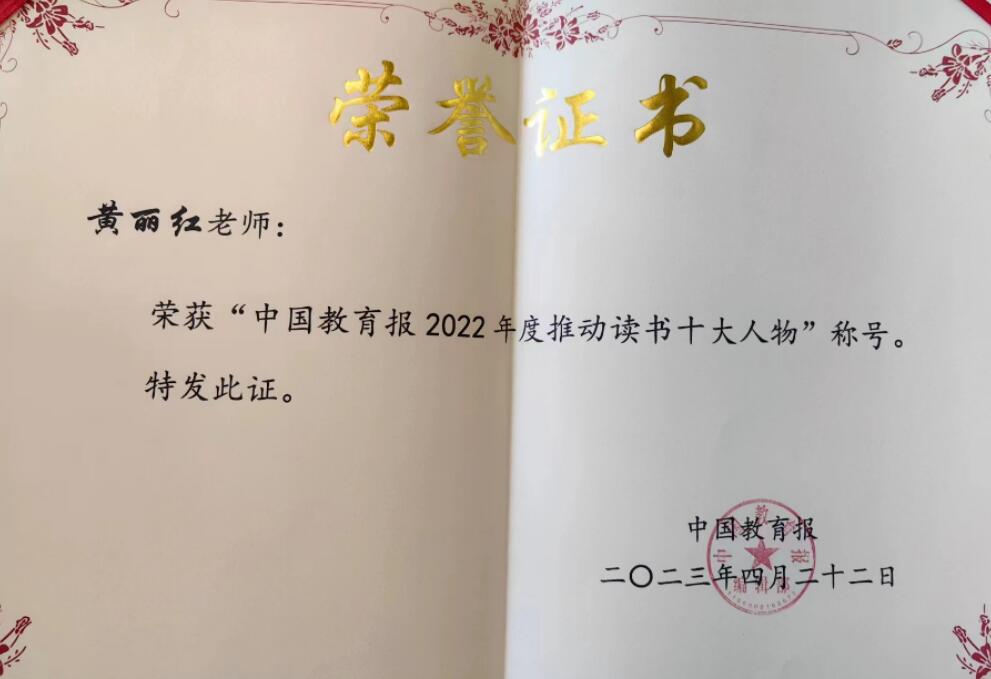 荣誉证书
黄丽红老师：
荣获“中国教育报2022年度推动读书十大人物”称号。
特发此证。
中国教育报
二〇二三年四月二十二日